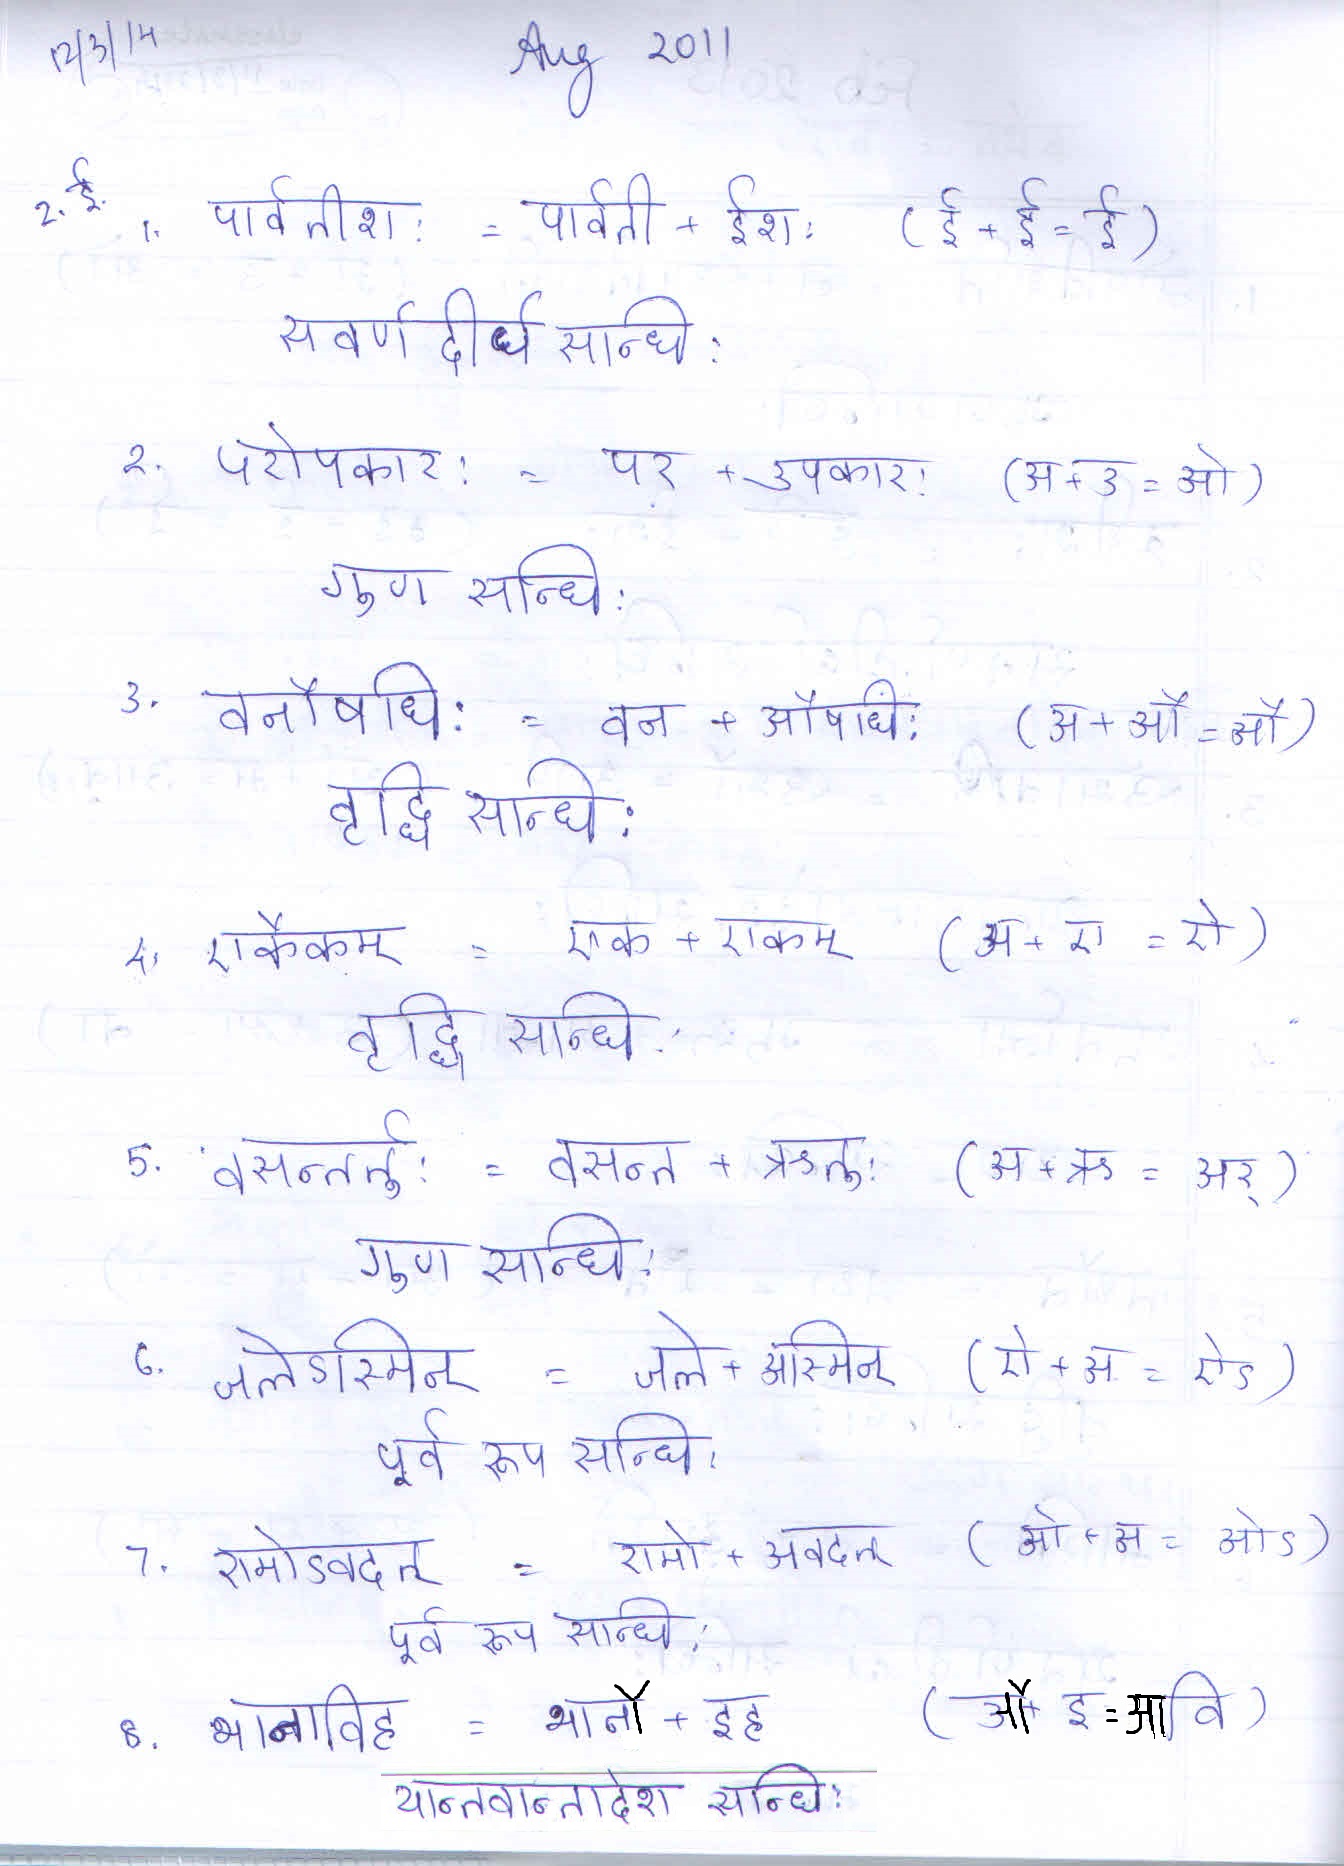 12/3/14 Aug 2011
2. ई. 1. पार्वतीशः = पार्वती + ईशः (ई + ई = ई)
सवर्ण दीर्घ सन्धिः
2. परोपकारः = पर + उपकारः (अ + उ = ओ)
गुण सन्धिः
3. वनौषधिः = वन + औषधिः (अ + औ = औ)
वृद्धि सन्धिः
4. एकैकम् = एक + एकम् (अ + ए = ऐ)
वृद्धि सन्धिः
5. वसन्तर्तुः = वसन्त + ऋतुः (अ + ऋ = अर्)
गुण सन्धिः
6. जलेऽस्मिन् = जले + अस्मिन् (ऐ + अ = ऐऽ)
पूर्व रूप सन्धिः
7. रामोऽवदत् = रामो + अवदत् (ओ + अ = ओऽ)
पूर्व रूप सन्धिः
8. भानाविह = भानौ + इह (औ + इ = आवि)
यान्तवान्तादेश सन्धिः